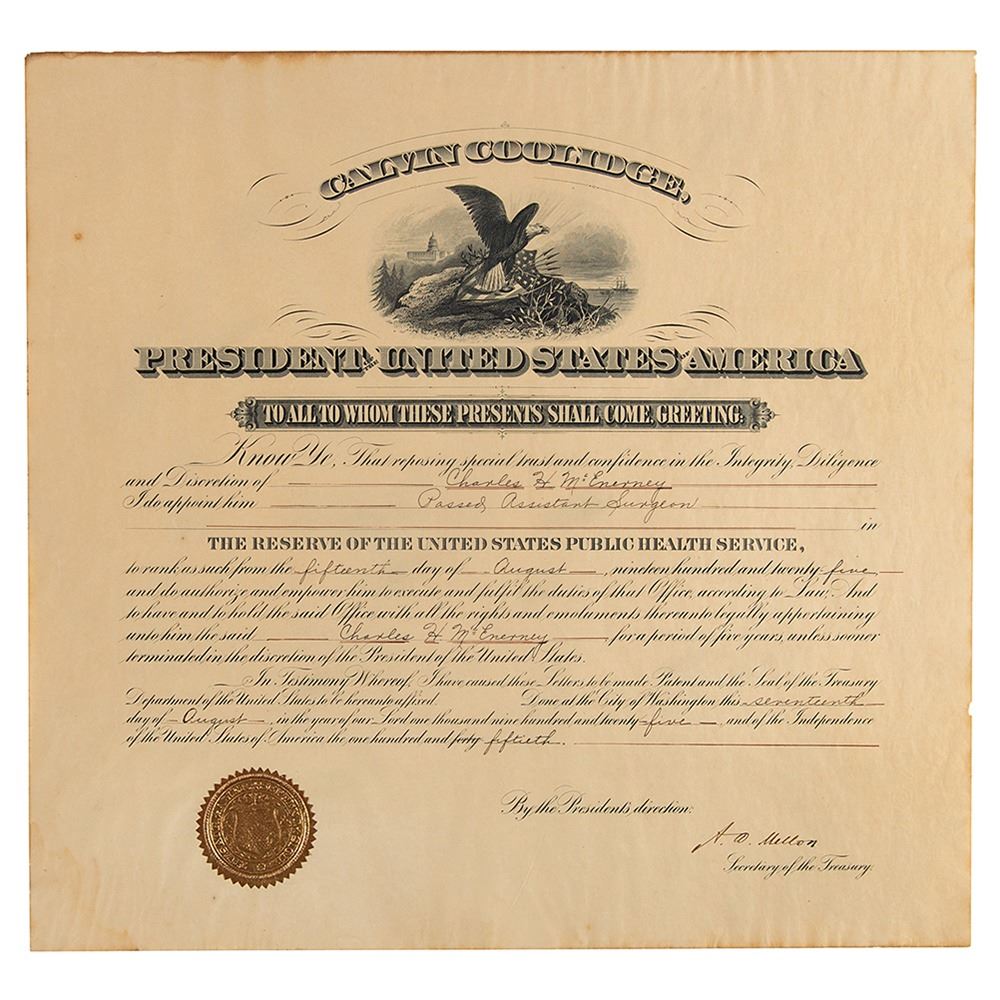 CALVIN COOLIDGE,
PRESIDENT OF THE UNITED STATES OF AMERICA
TO ALL TO WHOM THESE PRESENTS SHALL COME, GREETING:
Know Ye, That reposing special trust and confidence in the Integrity, Diligence
and Discretion of Charles H McEnerney
I do appoint him Passed Assistant Surgeon
in
THE RESERVE OF THE UNITED STATES PUBLIC HEALTH SERVICE,
to rank as such from the fifteenth day of August, nineteen hundred and twenty-five
and do authorize and empower him to execute and fulfil the duties of that Office, according to Law: And
to have and to hold the said Office with all the rights and emoluments thereunto legally appertaining
unto him the said Charles H McEnerney, for a period of five years, unless sooner
terminated in the discretion of the President of the United States.
In Testimony Whereof, I have caused these Letters to be made Patent and the Seal of the Treasury
Department of the United States to be hereunto affixed. Done at the City of Washington this seventeenth
day of August, in the year of our Lord one thousand nine hundred and twenty-five, and of the Independence
of the United States of America the one hundred and forty fiftieth.
By the President's direction:
A. W. Mellon
Secretary of the Treasury.